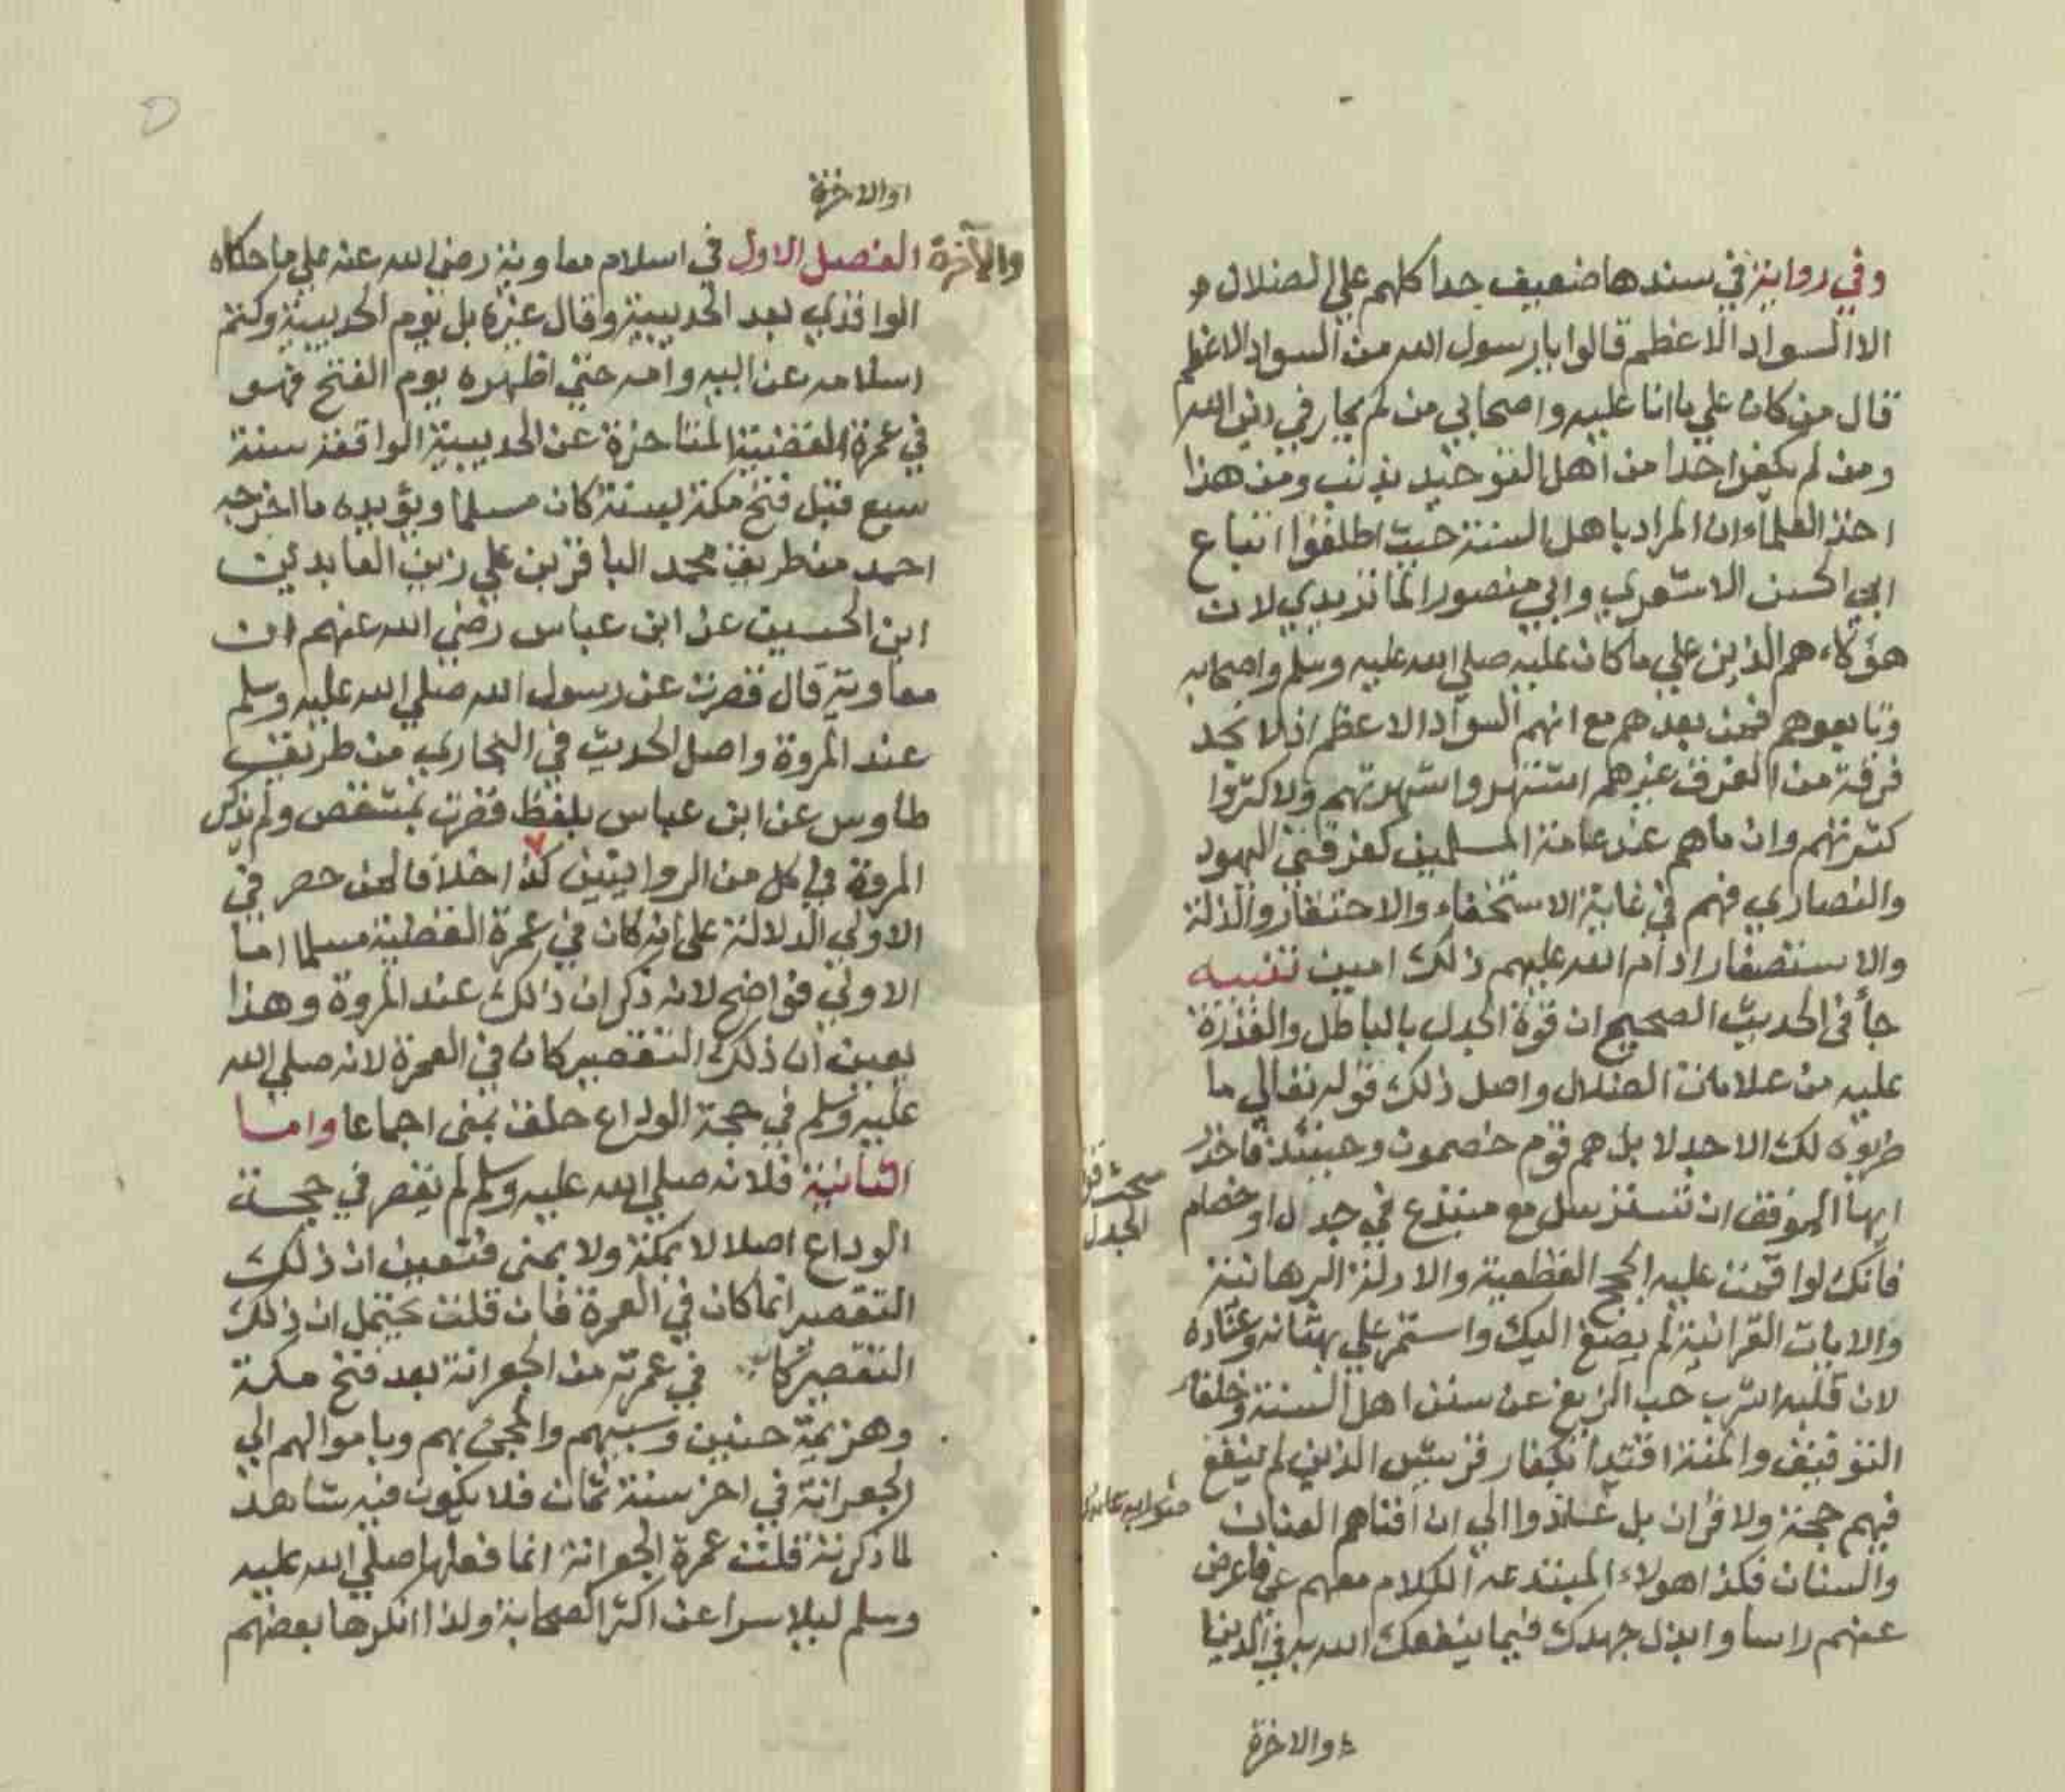 وفي رواية في سندها ضعيف جدا كلهم علي الضلال
الا السواد الاعظم قالوا يا رسول الله من السواد الاعظم
قال من كان علي ما انا عليه واصحابي من لم يمار في دين الله
ومن لم يكفر احدا من اهل التوحيد بذنب ومن هذا
اخذ العلماء ان المراد باهل السنة حيث اطلقوا اتباع
ابي الحسن الاشعري وابي منصور الماتريدي لان
هؤلاء هم الذين علي ما كان عليه صلي الله عليه وسلم واصحابه
وتابعوهم فمن بعدهم مع انهم السواد الاعظم اذ لا تجد
فرقة من الفرق غيرهم اشتهروا شهرتهم ولا كثروا
كثرتهم وان ما هم عند عامة المسلمين كفرقتي اليهود
والنصاري فهم في غاية الاستخفاء والاحتقار والذلة
والاستصغار ادام الله عليهم ذلك امين تنبيه
جأ في الحديث الصحيح ان قوة الجدل بالباطل والقدرة
عليه من علامات الضلال واصل ذلك قوله تعالي ما
ضربوه لك الا جدلا بل هم قوم خصمون وحينئذ فاحذر
ايها الموفق ان تسترسل مع مبتدع في جدال او خصام
فانك لو اقمت عليه الحجج القطعية والادلة البرهانية
والايات القرانية لم يصغ اليك واستمر علي بهتانه وعناده
لان قلبه اشرب حب الزيغ عن سنن اهل السنة وخلفا
التوفيق والمنة اقتدأ بكفار قريش الذين لم ينفع
فيهم حجة ولا قران بل عاندوا الي ان افناهم العناد
والسنان فكذا هولاء المبتدعه الكلام معهم عي فاعرض
عنهم راسا وابذل جهدك فيما ينفعك الله به في الدنيا
والاخرة
مبحث
الجدل
اوالاخرة
والآخرة الفصل الاول في اسلام معاوية رضي الله عنه علي ما حكاه
الواقدي بعد الحديبية وقال غيره بل يوم الحديبية وكتم
اسلامه عن ابيه وامه حتي اظهره يوم الفتح فهو
في عمرة القضية المتاخرة عن الحديبية الواقعة سنة
سبع قبل فتح مكة بسنة كان مسلما ويؤيده ما اخرجه
احمد من طريق محمد الباقر بن علي زين العابدين
ابن الحسين عن ابن عباس رضي الله عنهم ان
معاوية قال قصرت عن رسول الله صلي الله عليه وسلم
عند المروة واصل الحديث في البخاري من طريق
طاوس عن ابن عباس بلفظ قصرت بمشقص ولم يذكر
المروة في كل من الروايتين كذا اخلافا لمن حصر في
الاولي الدلالة علي انه كان في عمرة القضية مسلما اما
الاولي فواضح لانه ذكر ان ذلك عند المروة وهذا
يعين ان ذلك التقصير كان في العمرة لانه صلي الله
عليه وسلم في حجة الوداع حلق بمنى اجماعا واما
الثانية فلانه صلي الله عليه وسلم لم يقصر في حجة
الوداع اصلا لا بمكة ولا بمنى فتعين ان ذلك
التقصير انما كان في العمرة فان قلت يحتمل ان ذلك
التقصير كان في عمرته من الجعرانة بعد فتح مكة
وهزيمة حنين وسبيهم والمجئ بهم وباموالهم الي
الجعرانة في اخر سنة ثمان فلا يكون فيه شاهد
لما ذكرته قلت عمرة الجعرانة انما فعلها صلي الله عليه
وسلم ليلا سرا عن اكثر الصحابة ولذا انكرها بعضهم